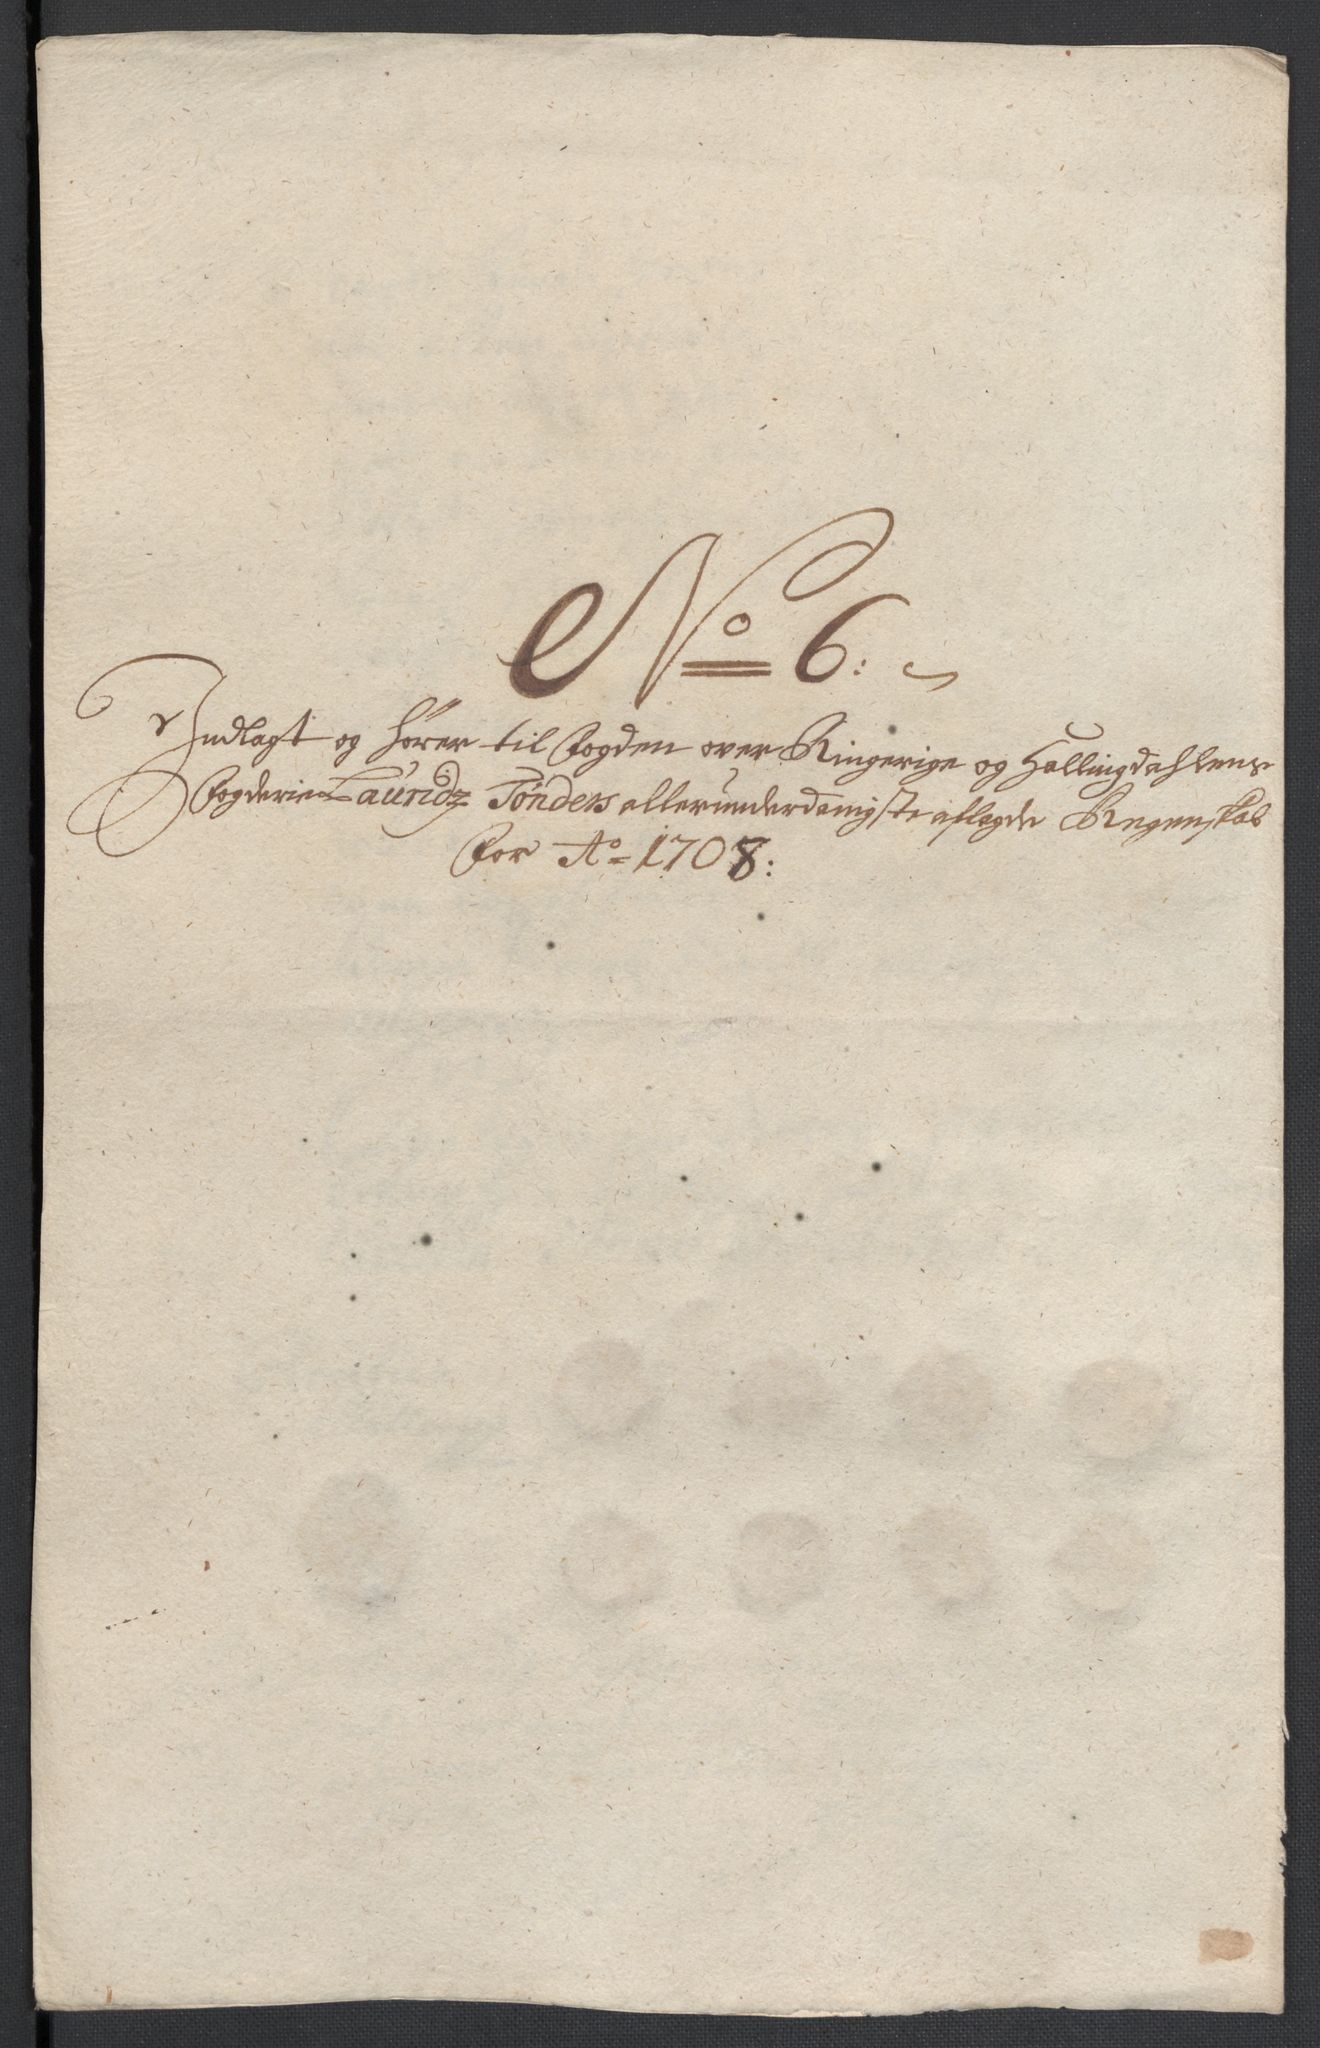 No 6:
Indlagt og hörer til Fogden over Ringerige og Hallingdahlens
Fogderie Lauridz Tönders allerunderdanigste aflagde Regenskab
For Ao 1708: